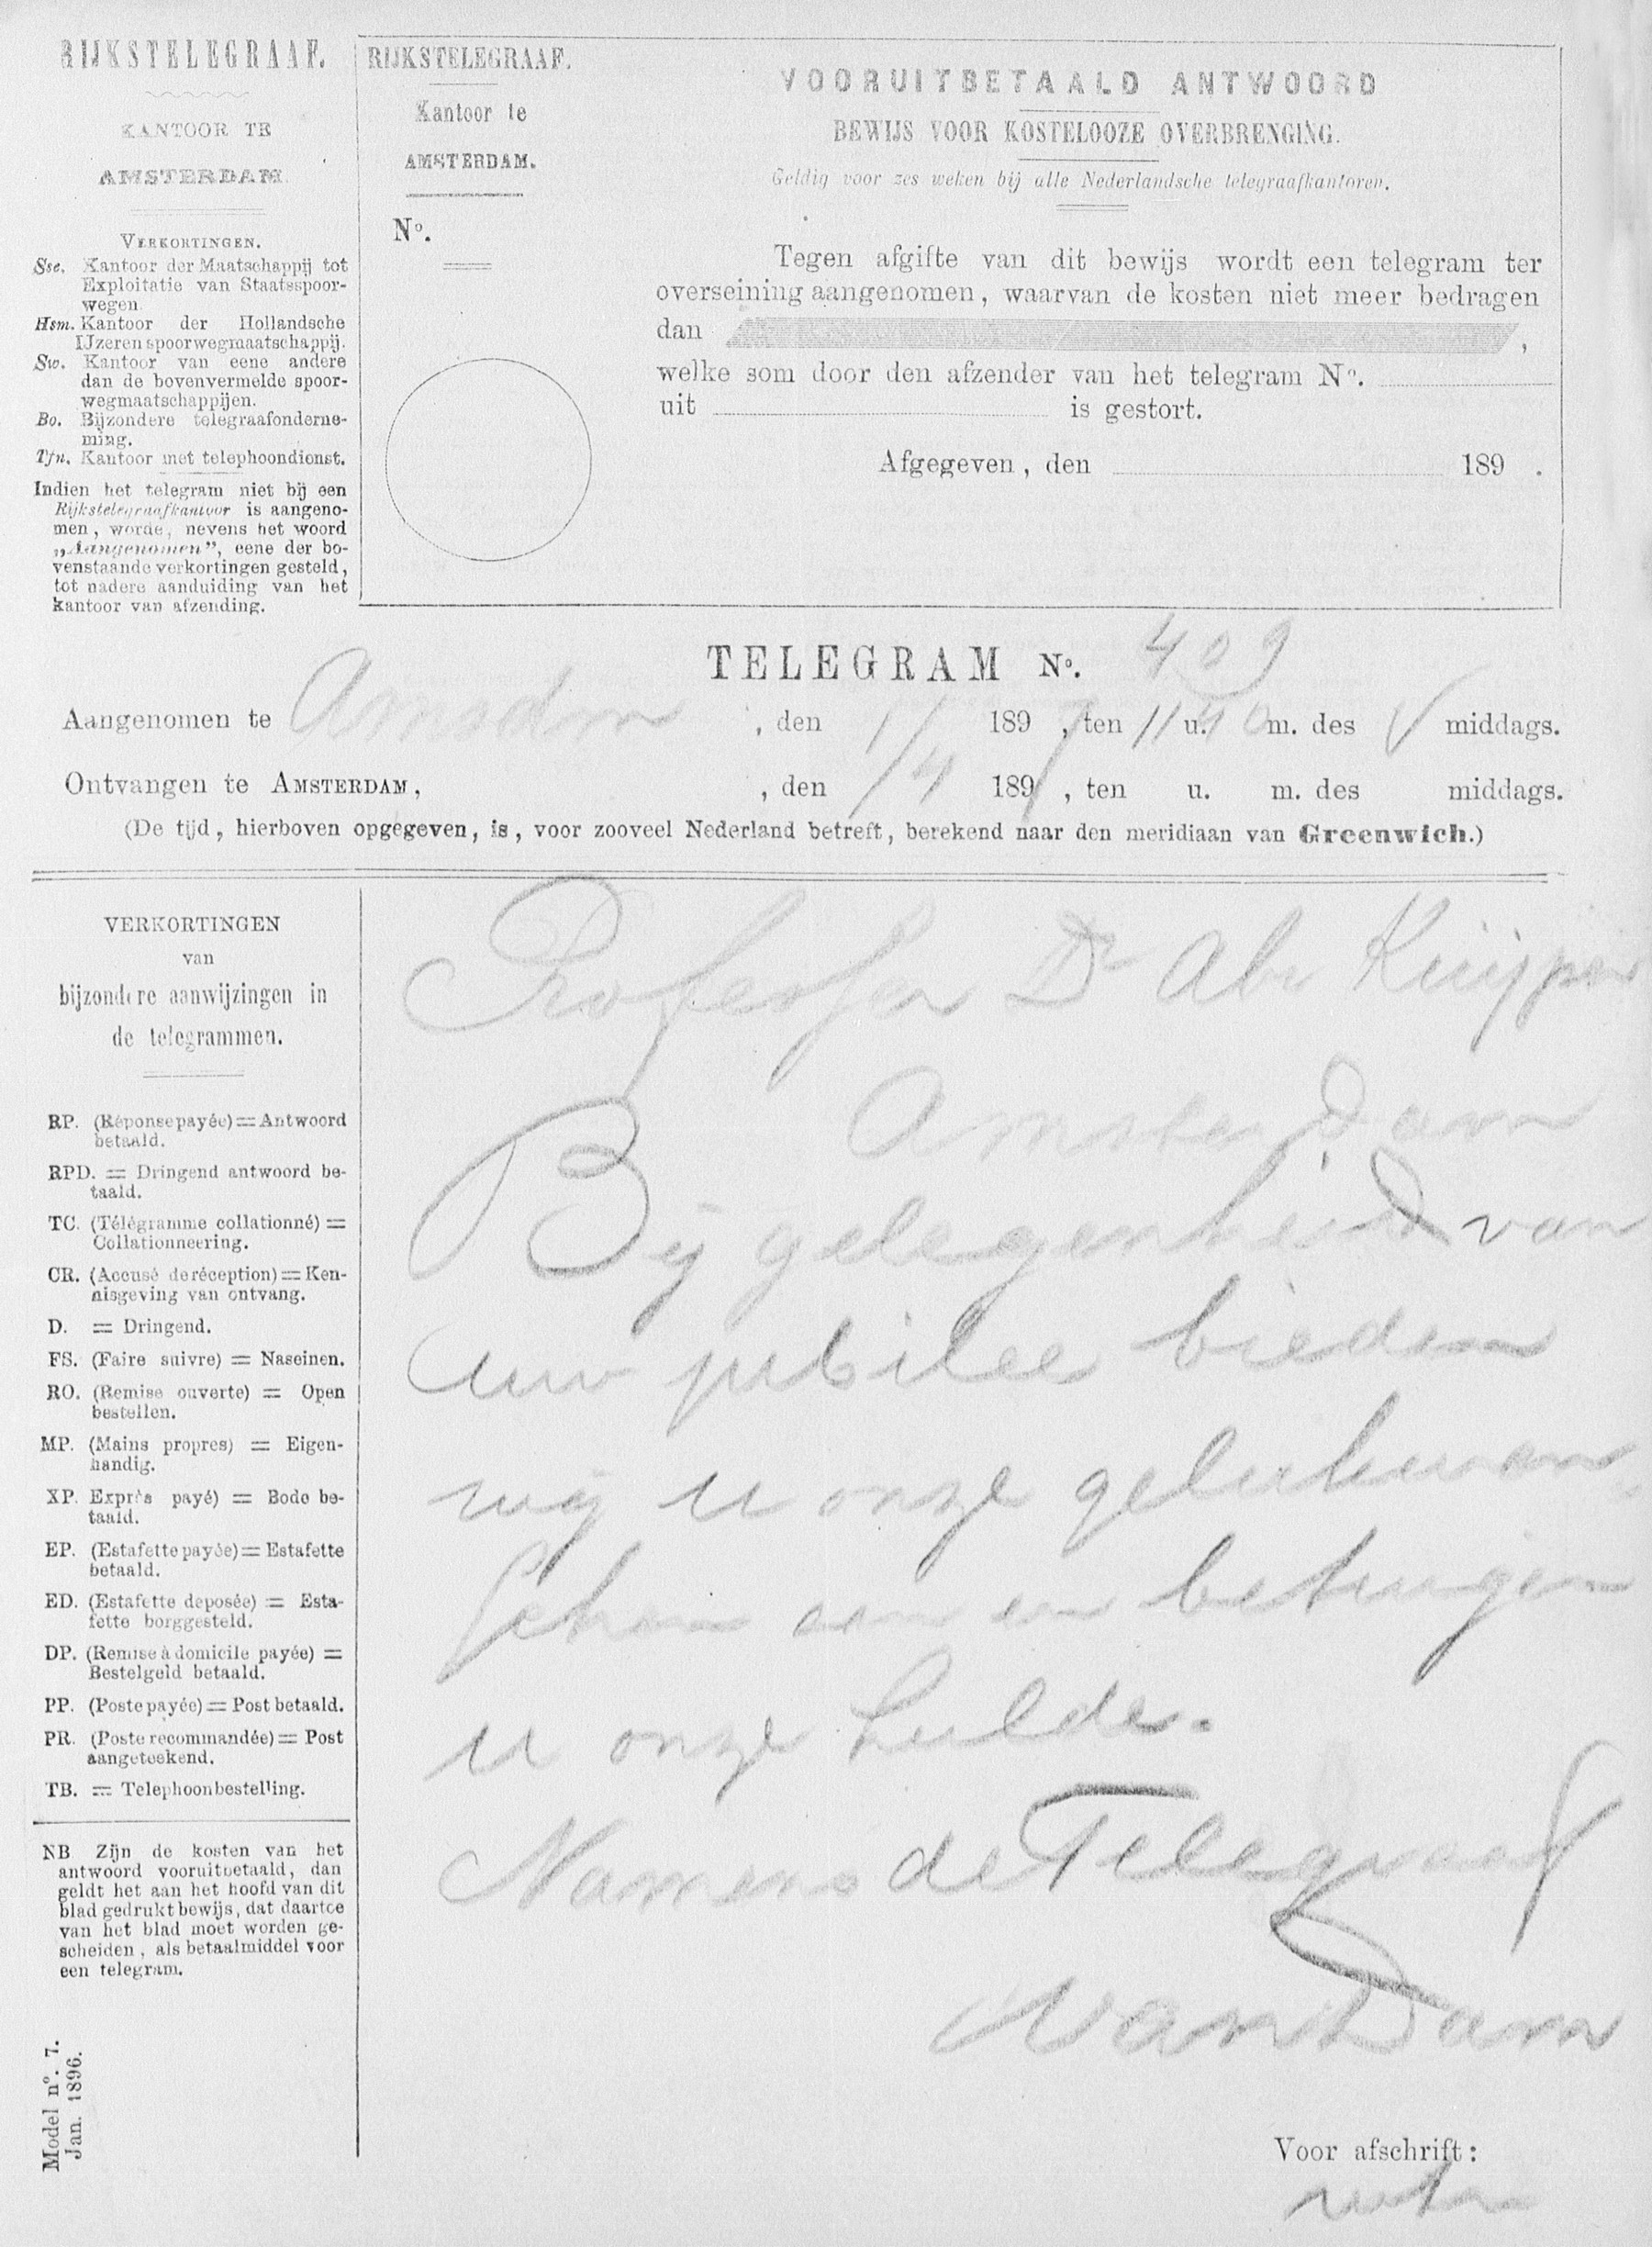 RIJKSTELEGRAAF.
KANTOOR TE
AMSTERDAM.
VERKORTINGEN.
Sse. Kantoor der Maatschappij tot
Exploitatie van Staatsspoor-
wegen.
Hsm. Kantoor der Hollandsche
IJzeren spoorwegmaatschappij.
Sw. Kantoor van eene andere
dan de bovenvermelde spoor-
wegmaatschappijen.
Bo. Bijzondere telegraafonderne-
ming.
Tfn. Kantoor met telephoondienst.
Indien het telegram niet bij een
Rijkstelegraafkantoor is aangeno-
men, worde, nevens het woord
„Aangenomen", eene der bo-
venstaande verkortingen gesteld,
tot nadere aanduiding van het
kantoor van afzending.
RIJKSTELEGRAAF.
Kantoor te
AMSTERDAM.
No.
VOORUITBETAALD ANTWOORD
BEWIJS VOOR KOSTELOOZE OVERBRENGING.
Geldig voor zes weken bij alle Nederlandsche telegraafkantoren.
Tegen afgifte van dit bewijs wordt een telegram ter
overseining aangenomen, waarvan de kosten niet meer bedragen
dan ,
welke som door den afzender van het telegram No.
uit is gestort.
Afgegeven, den 189 .
TELEGRAM No. 409
Aangenomen te Amsdm , den 1/ 1897, ten 11 u. 40 m. des V middags.
Ontvangen te AMSTERDAM, , den 1/4 1897, ten u. m. des middags.
(De tijd, hierboven opgegeven, is, voor zooveel Nederland betreft, berekend naar den meridiaan van Greenwich.)
VERKORTINGEN
van
bijzondere aanwijzingen in
de telegrammen.
RP. (Réponse payée) = Antwoord
betaald.
RPD. = Dringend antwoord be-
taald.
TC. (Télégramme collationné) =
Collationneering.
CR. (Accusé de réception) = Ken-
nisgeving van ontvang.
D. = Dringend.
FS. (Faire suivre) = Naseinen.
RO. (Remise ouverte) = Open
bestellen.
MP. (Mains propres) = Eigen-
handig.
XP. Exprès payé) = Bode be-
taald.
EP. (Estafette payée) = Estafette
betaald.
ED. (Estafette deposée) = Esta-
fette borggesteld.
DP. (Remise à domicile payée) =
Bestelgeld betaald.
PP. (Poste payée) = Post betaald.
PR. (Poste recommandée) = Post
aangeteekend.
TB. = Telephoonbestelling.
NB Zijn de kosten van het
antwoord vooruitbetaald, dan
geldt het aan het hoofd van dit
blad gedrukt bewijs, dat daartoe
van het blad moet worden ge-
scheiden, als betaalmiddel voor
een telegram.
Model no. 7.
Jan. 1896.
Professor Dr Abr Kuijper
Amsterdam
Bij gelegenheid van
uw jubilee bieden
wij u onze gelukwen-
schen aan en betuigen
u onze hulde.
Namens de Telegraaf
van Dam
Voor afschrift: